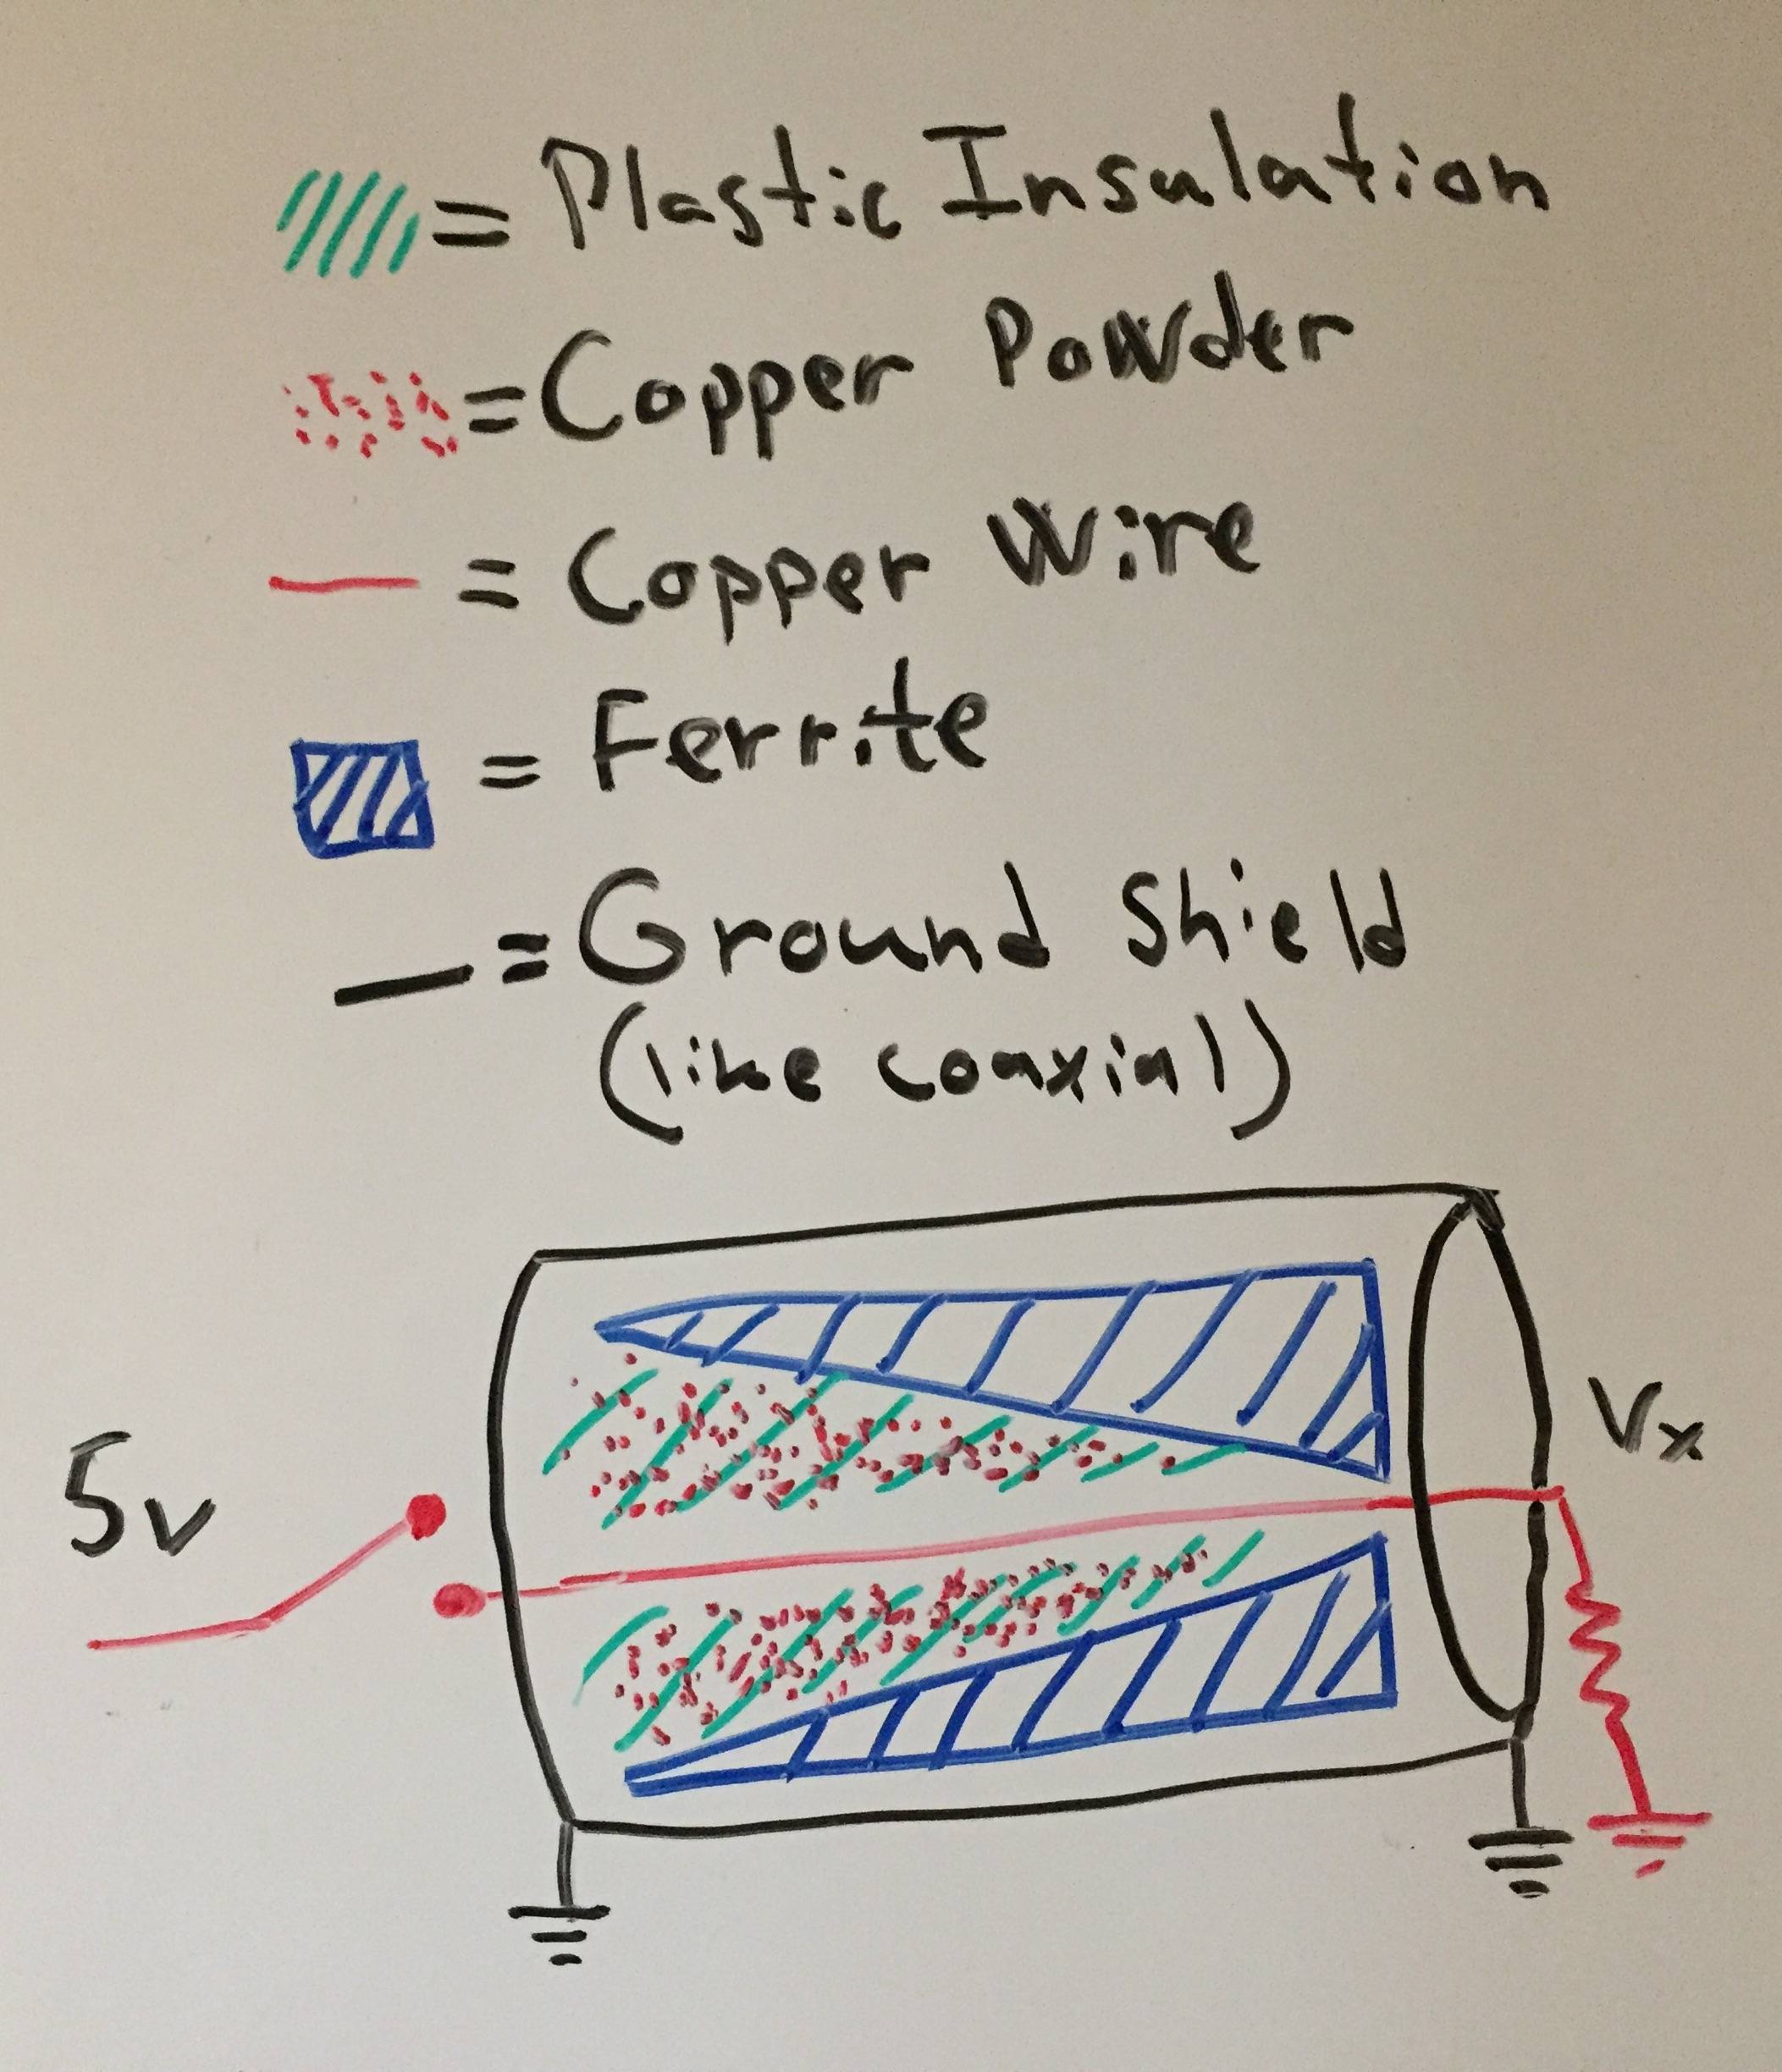 = Plastic Insulation
= Copper Powder
= Copper Wire
= Ferrite
= Ground Shield
(like coaxial)
5v
Vx